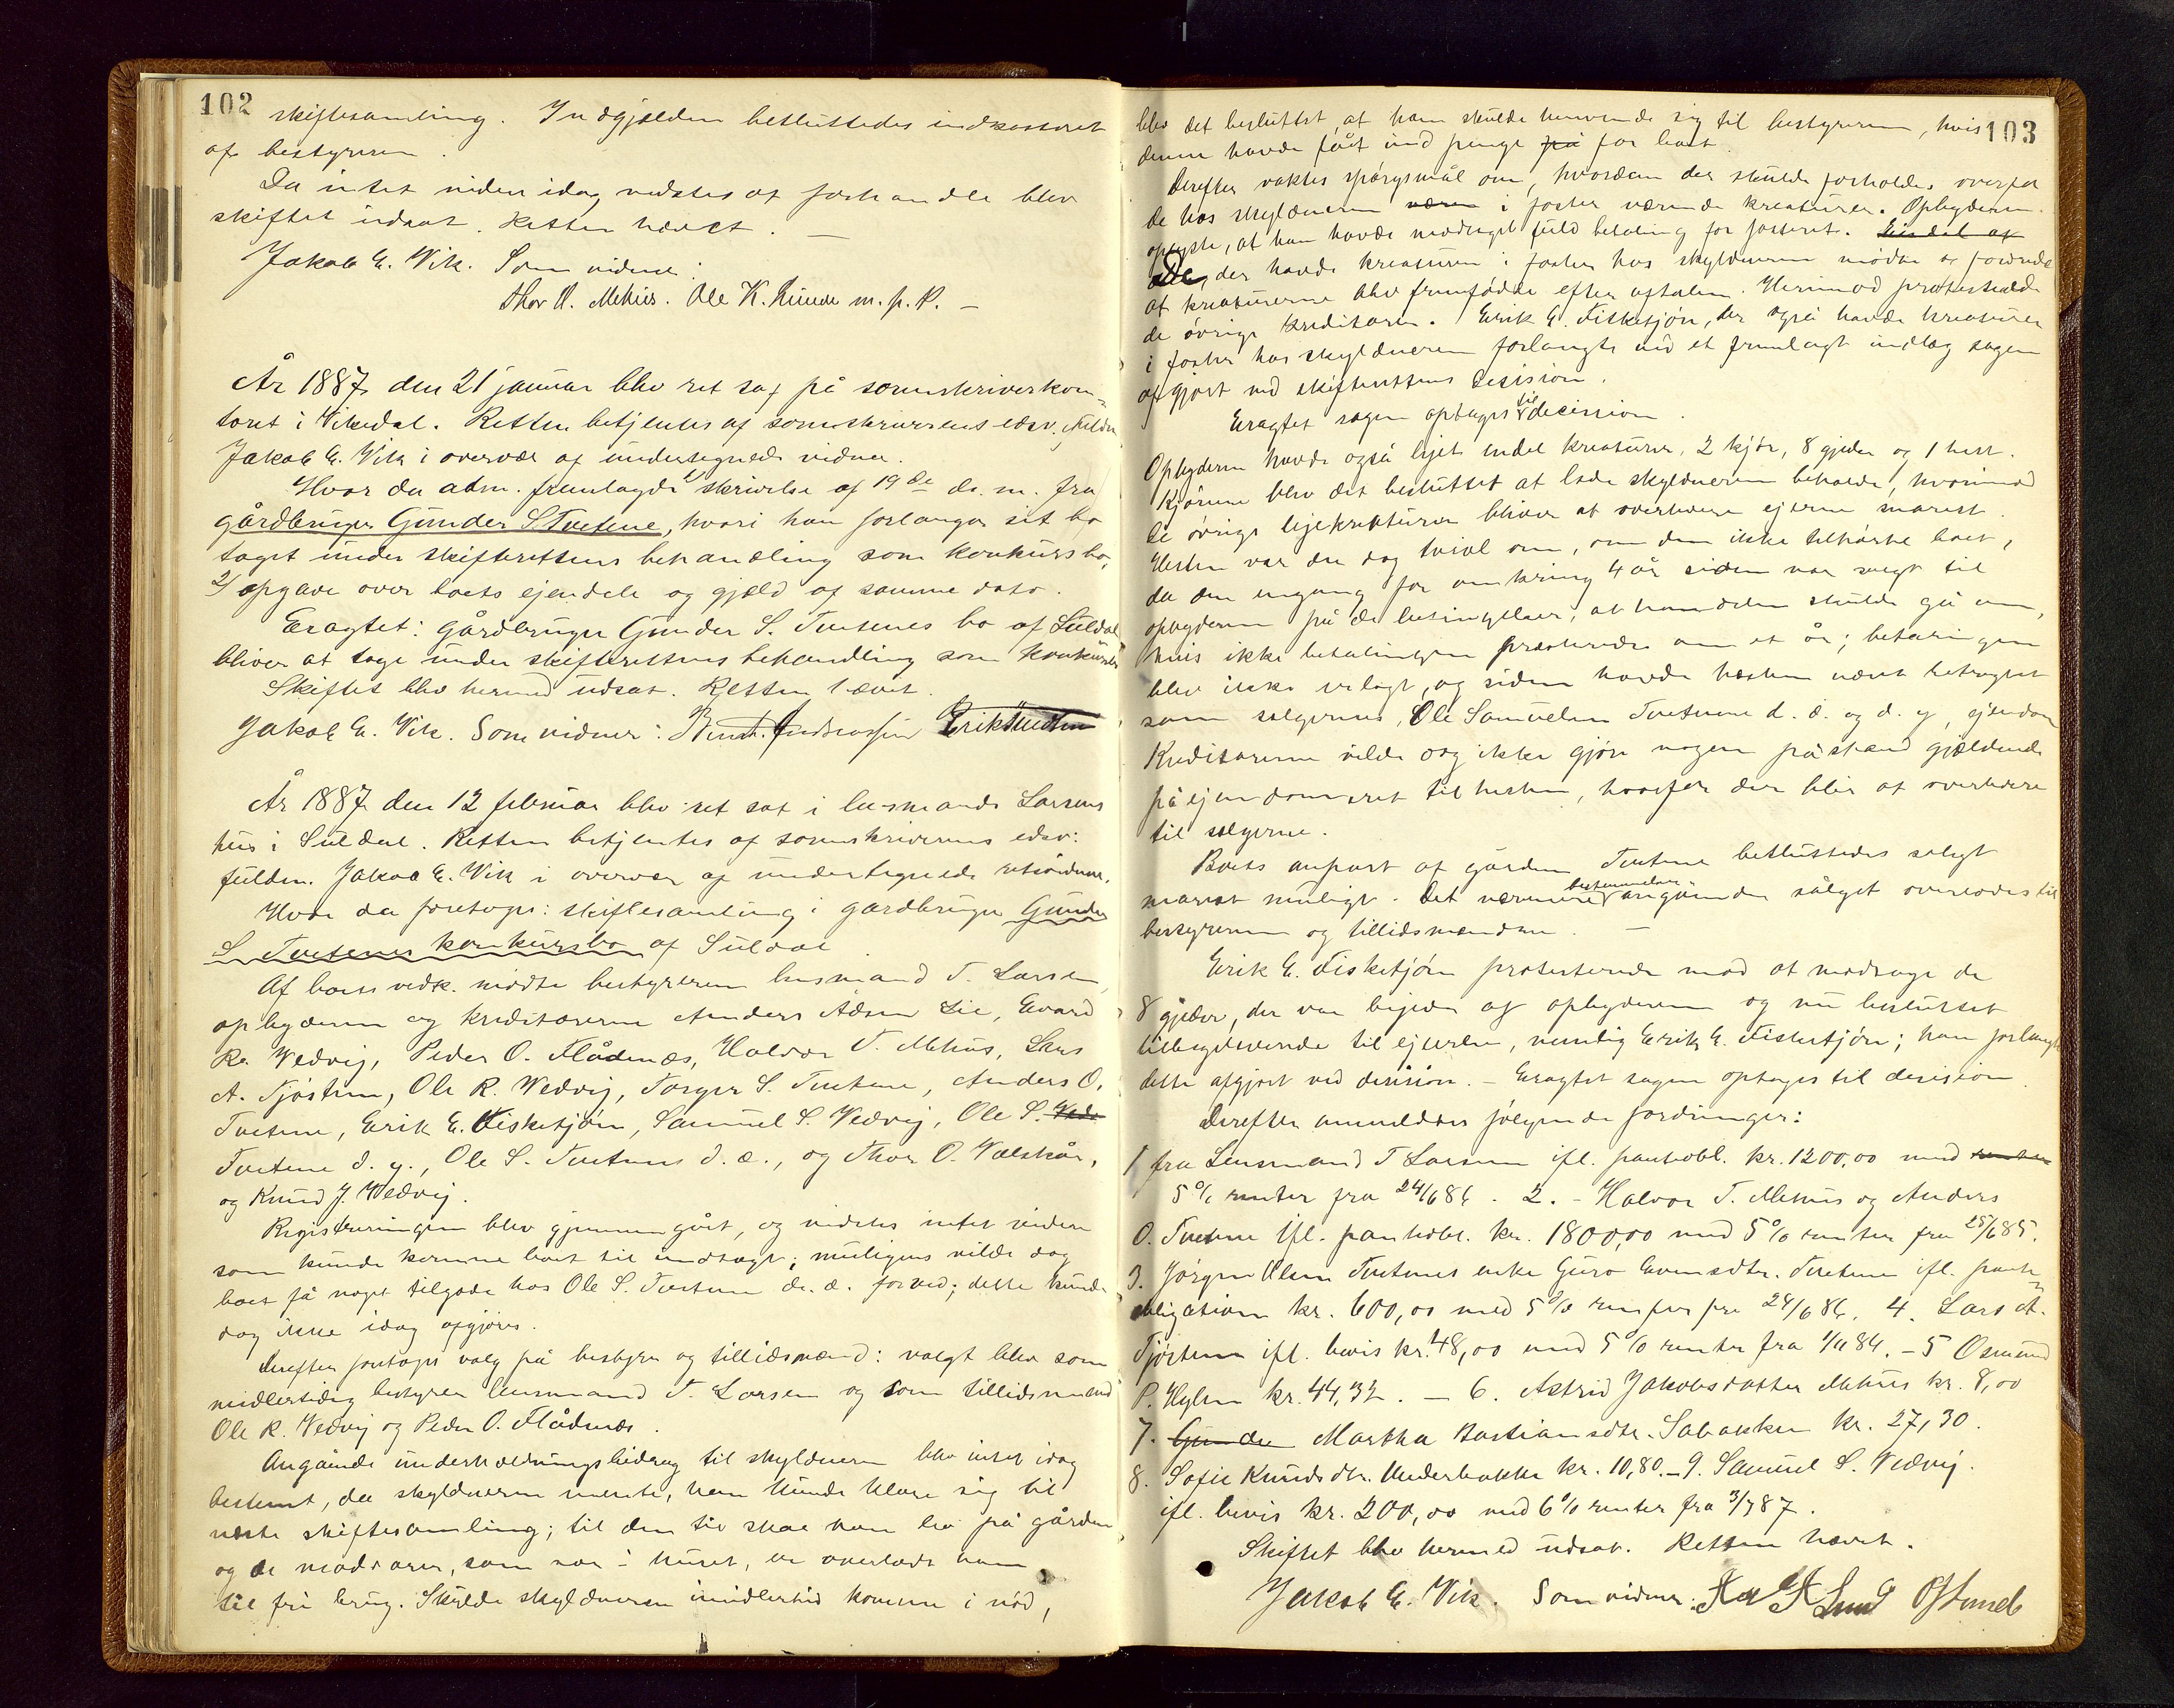 102
skiftesamling. Indgjælden besluttedes indkasseret
af bestyreren.
Da intet videre idag vidstes at forhandle blev
skiftet udsat. Retten hævet. —
Jakob E. Vik. Som vidner:
Thor O. Mehus. Ole K. Runde m. p. P. —
År 1887 den 21 januar blev ret sat på sorenskriverkon-
toret i Vikedal. Retten betjentes af sorenskriverens edsv. fuldm.
Jakob E. Vik i overvær af undertegnede vidner.
Hvor da adm. fremlagde 1) skrivelse af 19de ds. m. fra
gårdbruger Gunder S. Tveitene, hvori han forlanger sit bo
taget under skifterettens behandling som konkursbo,
2) opgave over boets ejendele og gjæld af samme dato.
Eragtet: Gårdbruger Gunder S. Tveitenes bo af Suldal
bliver at tage under skifterettens behandling som konkursbo
Skiftet blev hermed udsat. Retten hævet.
Jakob E. Vik. Som vidner: Erik
År 1887 den 12 februar blev ret sat i lensmand Larsens
hus i Suldal. Retten betjentes af sorenskriverens edsv:
fuldm. Jakob E. Vik i overvær af undertegnede retsvidner.
Hvor da foretoges: skiftesamling i gårdbruger Gunder
S. Tveitenes konkursbo af Suldal
Af boets vedk. mødte bestyreren lensmand T. Larsen
opbyderen og kreditorerne Anders Adsen Lie, Evard
R. Vedvig, Peder O. Flådnæs, Halvor T. Mehus, Lars
A. Tjøstem, Ole R. Vedvig, Torger S. Tveitene, Anders O.
Tveitene, Erik E. Fisketjøn, Samuel S. Vedvig, Ole S. Vedv
Tveitene d. y., Ole S. Tveitene d. æ., og Thor O. Valskår,
og Knud J. Vedvig.
Registreringen blev gjennemgået, og vidstes intet videre
som kunde komme boet til indtægt; muligens vilde dog
boet få noget tilgode hos Ole S. Tveitene d. æ. for ved; dette kunde
dog ikke idag afgjøres.
Derefter foretoges valg på bestyrer og tillidsmænd: valgt blev som
midlertidig bestyrer lensmand T. Larsen og som tillidsmænd
Ole R. Vedvig og Peder O. Flådnæs.
Angående underholdningsbidrag til skyldneren blev intet idag
bestemt, da skyldneren mente, han kunde klare sig til
næste skiftesamling; til den tid skal han bo på gården
og de madvarer, som var i huset, er overladt ham
til fri brug. Skulde skyldneren imidlertid komme i nød,
103
blev det besluttet, at han skulde henvende sig til bestyreren, hvis
denne havde fået ind penge på for boet.
Derefter vaktes spørgsmål om, hvordan der skulde forholdes overfor
de hos skyldneren være i foster værende kreaturer. Opbyderen
oplyste, at han havde modtaget fuld betaling for fosteret. En del af
Alle, der havde kreaturer i foster hos skyldneren mødte og fordrede
at kreaturerne blev fremfødde efter aftalen. Herimod protesterede
de øvrige kreditorer. Erik E. Fisketjøn, der også havde kreaturer
i foster hos skyldneren forlangte ved et fremlagt indlæg sagen
afgjort ved skifterettens decision.
Eragtet sagen optages til decision.
Opbyderen havde også lejet endel kreaturer, 2 kjør, 8 gjeder og 1 hest.
Kjørene blev det besluttet at lade skyldneren beholde, hvorimod
de øvrige lejekreaturer bliver at overlevere ejerne snarest.
Hesten var der dog tvivl om, om den ikke tilhørte boet,
da den engang for omkring 4 år siden var solgt til
opbyderen på de betingelser, at handelen skulde gå om,
hvis ikke betalingen præsteredes om et år; betalingen
blev ikke erlagt, og siden havde hesten været betragtet
som sælgernes, Ole Samuelsen Tveitene d. æ. og d. y, ejendom
Kreditorerne vilde dog ikke gjøre nogen påstand gjældende
på ejendomsret til hesten, hvorfor den blir at overlevere
til sælgerne.
Boets anpart af gården Tveitene besluttedes solgt
snarest muligt. Det nærmere bestemmelser angående salget overlodes til
bestyreren og tillidsmændene. —
Erik E. Fisketjøn protesterede mod at modtage de
8 gjeder, der var lejede af opbyderen og nu besluttet
tilbageleverede til ejeren, nemlig Erik E. Fisketjøn; han forlangte
dette afgjort ved decision. — Eragtet sagen optages til decision.
Derefter anmeldtes følgende fordringer:
1 fra Lensmand T Larsen ifl. pantobl. kr. 1200,00 med renter
5% renter fra 24/6 86. 2. - Halvor T. Mehus og Anders
O. Tveitene ifl. pantobl. kr. 1800,00 med 5% renter fra 25/6 85.
3. Jørgen Olsen Tveitenes enke Guro Evensdtr. Tveitene ifl. pant-
obligation kr. 600,00 med 5% renter fra 24/6 86. 4. Lars A.
Tjøstem ifl. bevis kr. 48,00 med 5% renter fra 1/11 84. - 5 Osmund
P. Hylen kr. 44,32. — 6. Astrid Jakobsdatter Mehus kr. 8,00
7. Gunder Martha Bastiansdtr. Sabakken kr. 27,30.
8. Sofie Knudsdtr. Underbakke kr. 10,80. - 9. Samuel S. Vedvig.
ifl. bevis kr. 200,00 med 6% renter fra 3/1 87.
Skiftet blev hermed udsat. Retten hævet.
Jakob E. Vik. Som vidner: Lund